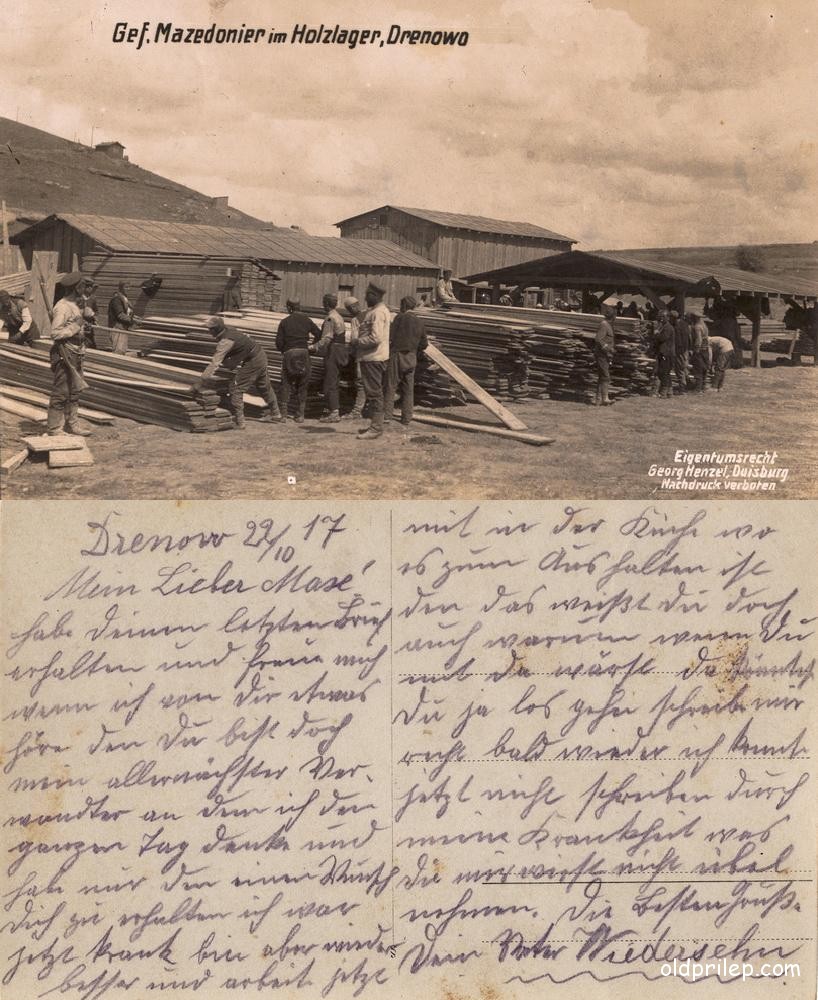 Gef. Mazedonier im Holzlager, Drenowo
Eigentumsrecht
Georg Henzel, Duisburg
Nachdruck verboten
Drenowo 29/10 17
Mein Lieber
habe deinen letzten Brief
erhalten und freue mich
wenn ich von Dir etwas
höre den Du bist doch
mein allernächster Ver-
wandter an dem ich den
ganzen Tag denke und
habe nur den einen Wunsch
Dich zu erhalten ich war
jetzt krank bin aber wieder
besser und arbeite jetzt
mit in der Küche wo
es zum Aushalten ist
den das weißt Du doch
auch warum wenn Du
mit da wärst da
Du ja los gehen schreibe mir
recht bald wieder ich konnte
jetzt nicht schreiben durch
meine Krankheit was
Du mir wirst nicht übel
nehmen. Die Besten Grüße
Dein Vater Wiedersehn
oldprilep.com